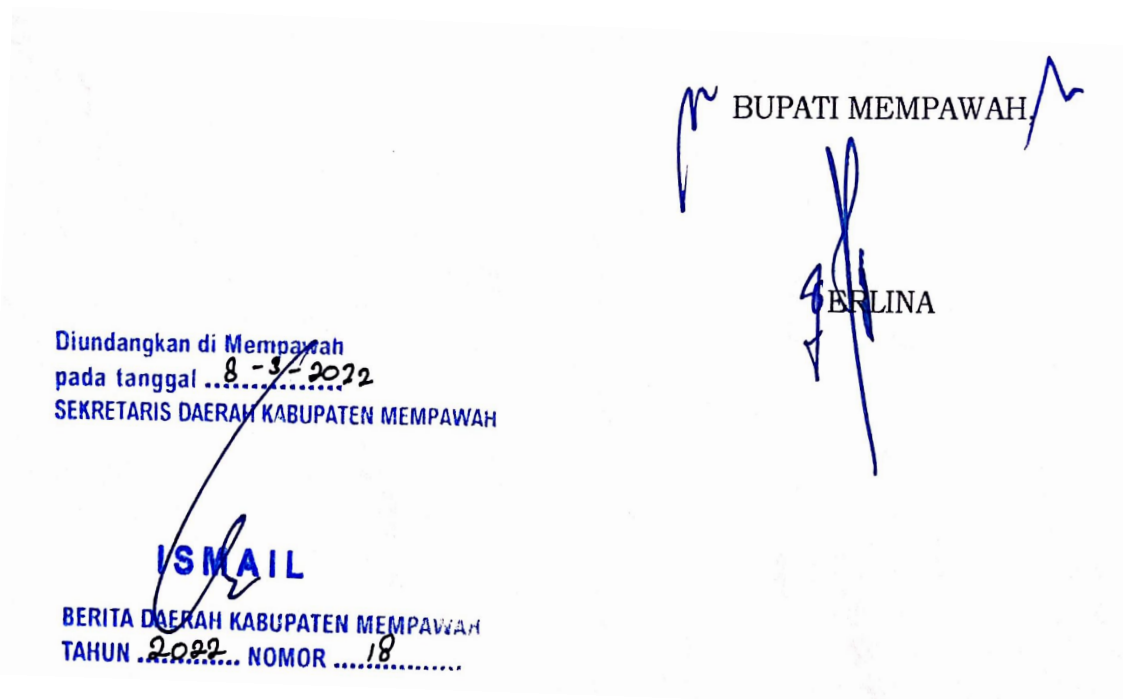 BUPATI MEMPAWAH,
ERLINA
Diundangkan di Mempawah
pada tanggal 8-3-2022
SEKRETARIS DAERAH KABUPATEN MEMPAWAH
ISMAIL
BERITA DAERAH KABUPATEN MEMPAWAH
TAHUN 2022 NOMOR 18